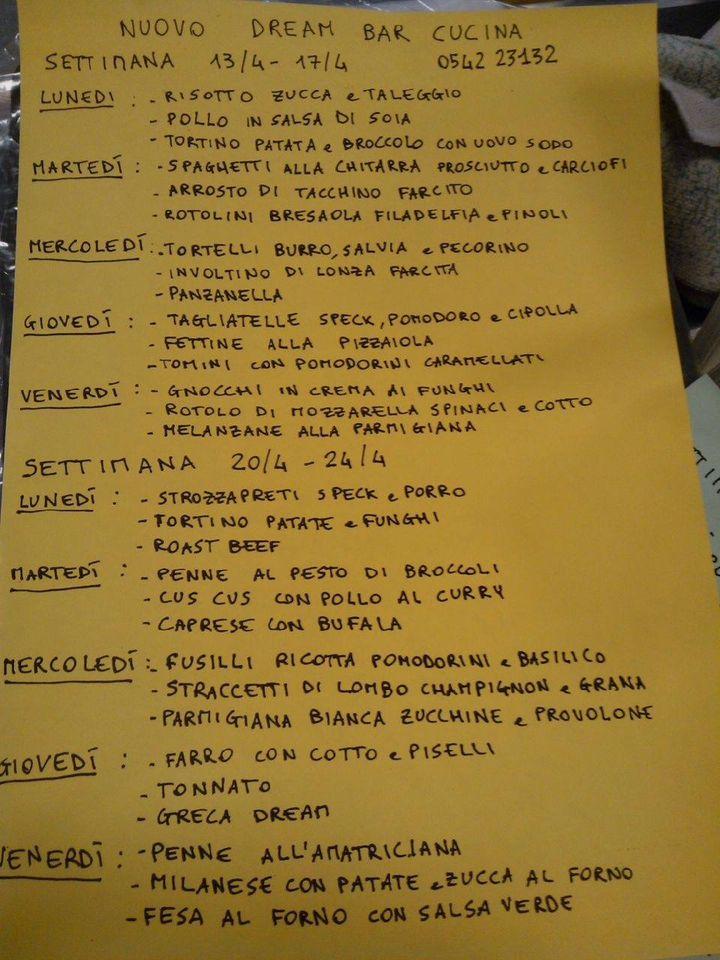 NUOVO DREAM BAR CUCINA
SETTIMANA 13/4 - 17/4 0542 23132
LUNEDI : - RISOTTO ZUCCA e TALEGGIO
- POLLO IN SALSA DI SOIA
- TORTINO PATATA e BROCCOLO CON UOVO SODO
MARTEDÌ : - SPAGHETTI ALLA CHITARRA PROSCIUTTO e CARCIOFI
- ARROSTO DI TACCHINO FARCITO
- ROTOLINI BRESAOLA FILADELFIA e PINOLI
MERCOLEDÌ : - TORTELLI BURRO, SALVIA e PECORINO
- INVOLTINO DI LONZA FARCITA
- PANZANELLA
GIOVEDÌ : - TAGLIATELLE SPECK, POMODORO e CIPOLLA
- FETTINE ALLA PIZZAIOLA
- TOMINI CON POMODORINI CARAMELLATI
VENERDÌ : - GNOCCHI IN CREMA AI FUNGHI
- ROTOLO DI MOZZARELLA SPINACI e COTTO
- MELANZANE ALLA PARMIGIANA
SETTIMANA 20/4 - 24/4
LUNEDÌ : - STROZZAPRETI SPECK e PORRO
- TORTINO PATATE e FUNGHI
- ROAST BEEF
MARTEDÌ : - PENNE AL PESTO DI BROCCOLI
- CUS CUS CON POLLO AL CURRY
- CAPRESE CON BUFALA
MERCOLEDÌ : - FUSILLI RICOTTA POMODORINI e BASILICO
- STRACCETTI DI LOMBO CHAMPIGNON e GRANA
- PARMIGIANA BIANCA ZUCCHINE e PROVOLONE
GIOVEDÌ : - FARRO CON COTTO e PISELLI
- TONNATO
- GRECA DREAM
VENERDÌ : - PENNE ALL'AMATRICIANA
- MILANESE CON PATATE e ZUCCA AL FORNO
- FESA AL FORNO CON SALSA VERDE